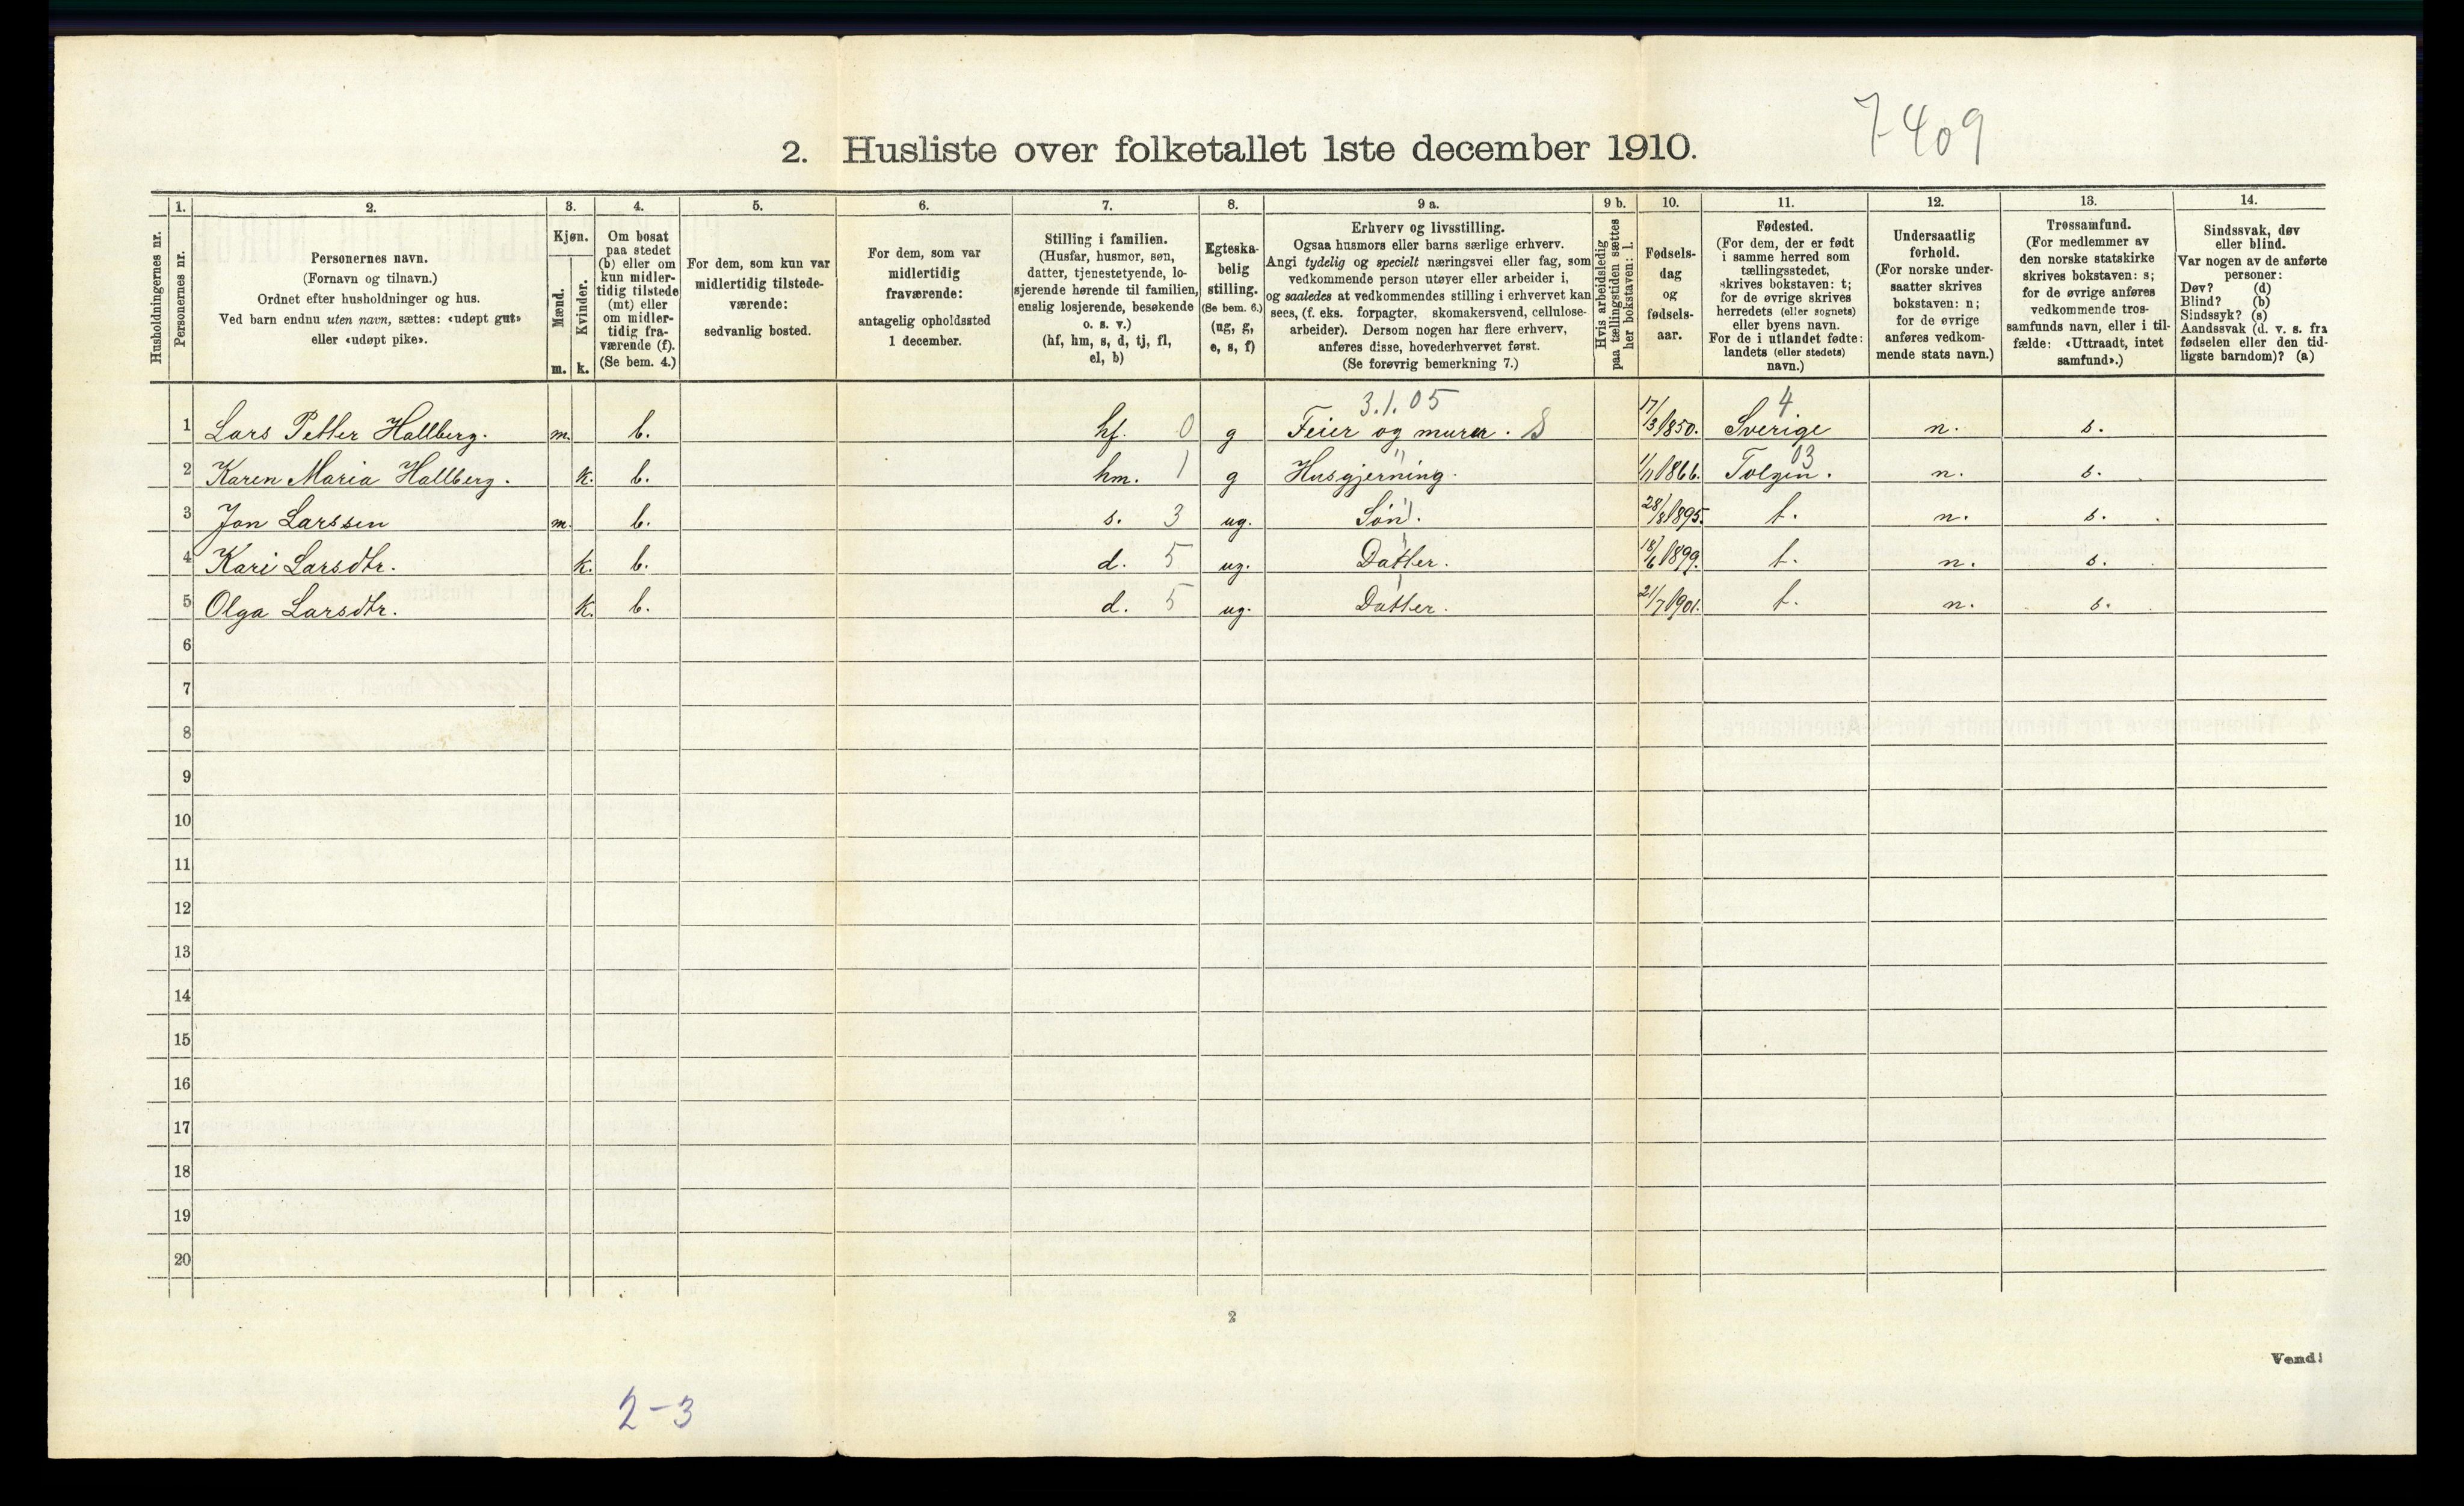 7409
2. Husliste over folketallet 1ste december 1910.
Husholdningernes nr.
1.
Personernes nr.
2.
Personernes navn.
(Fornavn og tilnavn.)
Ordnet efter husholdninger og hus.
Ved barn endnu uten navn, sættes: «udøpt gut»
eller «udøpt pike».
3.
Kjøn.
Mænd.
Kvinder.
m. k.
4.
Om bosat
paa stedet
(b) eller om
kun midler-
tidig tilstede
(mt) eller
om midler-
tidig fra-
værende (f).
(Se bem. 4.)
5.
For dem, som kun var
midlertidig tilstede-
værende:
sedvanlig bosted.
6.
For dem, som var
midlertidig
fraværende:
antagelig opholdssted
1 december.
7.
Stilling i familien.
(Husfar, husmor, søn,
datter, tjenestetyende, lo-
sjerende hørende til familien,
enslig losjerende, besøkende
o. s. v.)
(hf, hm, s, d, tj, fl,
el, b)
8.
Egteska-
belig
stilling.
(Se bem. 6.)
(ug, g,
e, s, f)
9 a.
Erhverv og livsstilling.
Ogsaa husmors eller barns særlige erhverv.
Angi tydelig og specielt næringsvei eller fag, som
vedkommende person utøver eller arbeider i,
og saaledes at vedkommendes stilling i erhvervet kan
sees, (f. eks. forpagter, skomakersvend, cellulose-
arbeider). Dersom nogen har flere erhverv,
anføres disse, hovederhvervet først.
(Se forøvrig bemerkning 7.)
9 b.
Hvis arbeidsledig
paa tællingstiden sættes
her bokstaven: l.
10.
Fødsels-
dag
og
fødsels-
aar.
11.
Fødested.
(For dem, der er født
i samme herred som
tællingsstedet,
skrives bokstaven: t;
for de øvrige skrives
herredets (eller sognets)
eller byens navn.
For de i utlandet fødte:
landets (eller stedets)
navn.)
12.
Undersaatlig
forhold.
(For norske under-
saatter skrives
bokstaven: n;
for de øvrige
anføres vedkom-
mende stats navn.)
13.
Trossamfund.
(For medlemmer av
den norske statskirke
skrives bokstaven: s;
for de øvrige anføres
vedkommende tros-
samfunds navn, eller i til-
fælde: «Uttraadt, intet
samfund».)
14.
Sindssvak, døv
eller blind.
Var nogen av de anførte
personer:
Døv? (d)
Blind? (b)
Sindssyk? (s)
Aandssvak (d. v. s. fra
fødselen eller den tid-
ligste barndom)? (a)
3.1.05 4
1 Lars Petter Hallberg. m. b. hf. 0 g Feier og murer. S 17/3 1850. Sverige n. s.
03
2 Karen Maria Hallberg. k. b. hm. 1 g Husgjerning. 1/11 1866. Tolgen. n. s.
3 Jon Larssen m. b. s. 3 ug. Søn. 28/8 1895. t. n. s.
4 Kari Larsdtr. k. b. d. 5 ug. Datter. 18/6 1899. t. n. s.
5 Olga Larsdtr. k. b. d. 5 ug. Datter. 21/7 1901. t. n. s.
6
7
8
9
10
11
12
13
14
15
16
17
18
19
20
2
Vend!
2-3